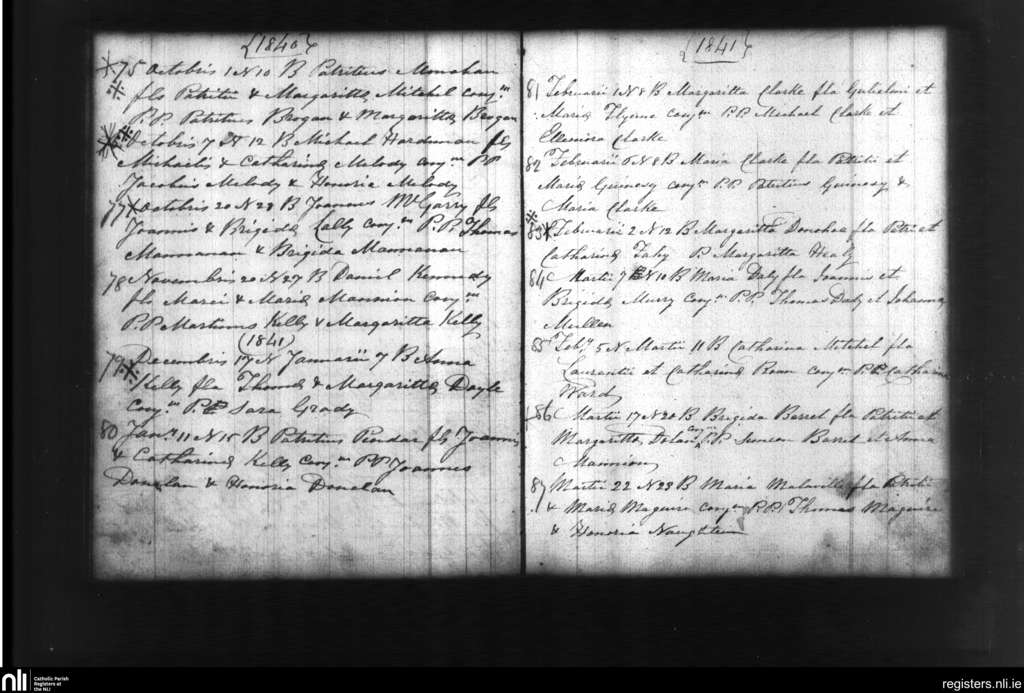 {1840}
75 Octobris 1 N 10 B Patritius Monahan
fls Patritii & Margaritta Mitchel conj.m
P.P Patritius Brogan & Margaritta Brogan
Octobris 7 N 12 B Michael Hardeman fls
Michaelis & Catharina Melody conj m PP
Jacobus Melody & Honoria Melody
77 Octobris 20 N 28 B Joannes McGarry fls
Joannis & Brigida Lally conj.m P.P. Thomas
Mannanan & Brigida Mannanan
78 Novembris 20 N 27 B Daniel Kennedy
fls & Maria Mannion Conj.m
P.P Martinus Kelly & Margaritta Kelly
(1841)
79 Decembris 17 N Januarii 7 B Anna
Kelly fla Thoma & Margaritta Doyle
Conj.m P.P Sara Grady
80 Jan.y 11 N 15 B Patritius fls Joannis
& Catharina Kelly Conj.m P.P Joannes
Donelan & Honoria Donelan
{1841}
81 Februarii 1 N 8 B Margaritta Clarke fla Gulielmi et
Maria Flynne conj m P.P. Michael Clarke et
Ellenora Clarke
82 Februarii N 8 B Maria Clarke fla Patritii et
Maria Guinessy conj m P.P Patritius Guinessy &
Maria Clarke
83 Februarii 2 N 12 B Margaritta Donohoe fla Petri et
Catharina Fahy P. Margaritta Healy
84 Martii 7 N 10 B Maria Daly fla Joannis et
Brigida Murry Conj m P.P. Thomas Daly et Johanna
Mullen
85 Feb.y 5 N Martii 11 B Catharina Mitchel fla
Laurentii et Catharina Roan conj m P.P Catharina
Ward
86 Martii 17 N 20 B Brigida Barret fla Patritii et
Margaritta Dolan conj m P.P Simeon Barret et Anna
Mannion
87 Martii 22 N 28 B Maria fla Patritii
& Maria Maguire conj m P.P. Thomas Maguire
& Honoria Naughten
nli
Catholic Parish
Registers at
the NLI
registers.nli.ie